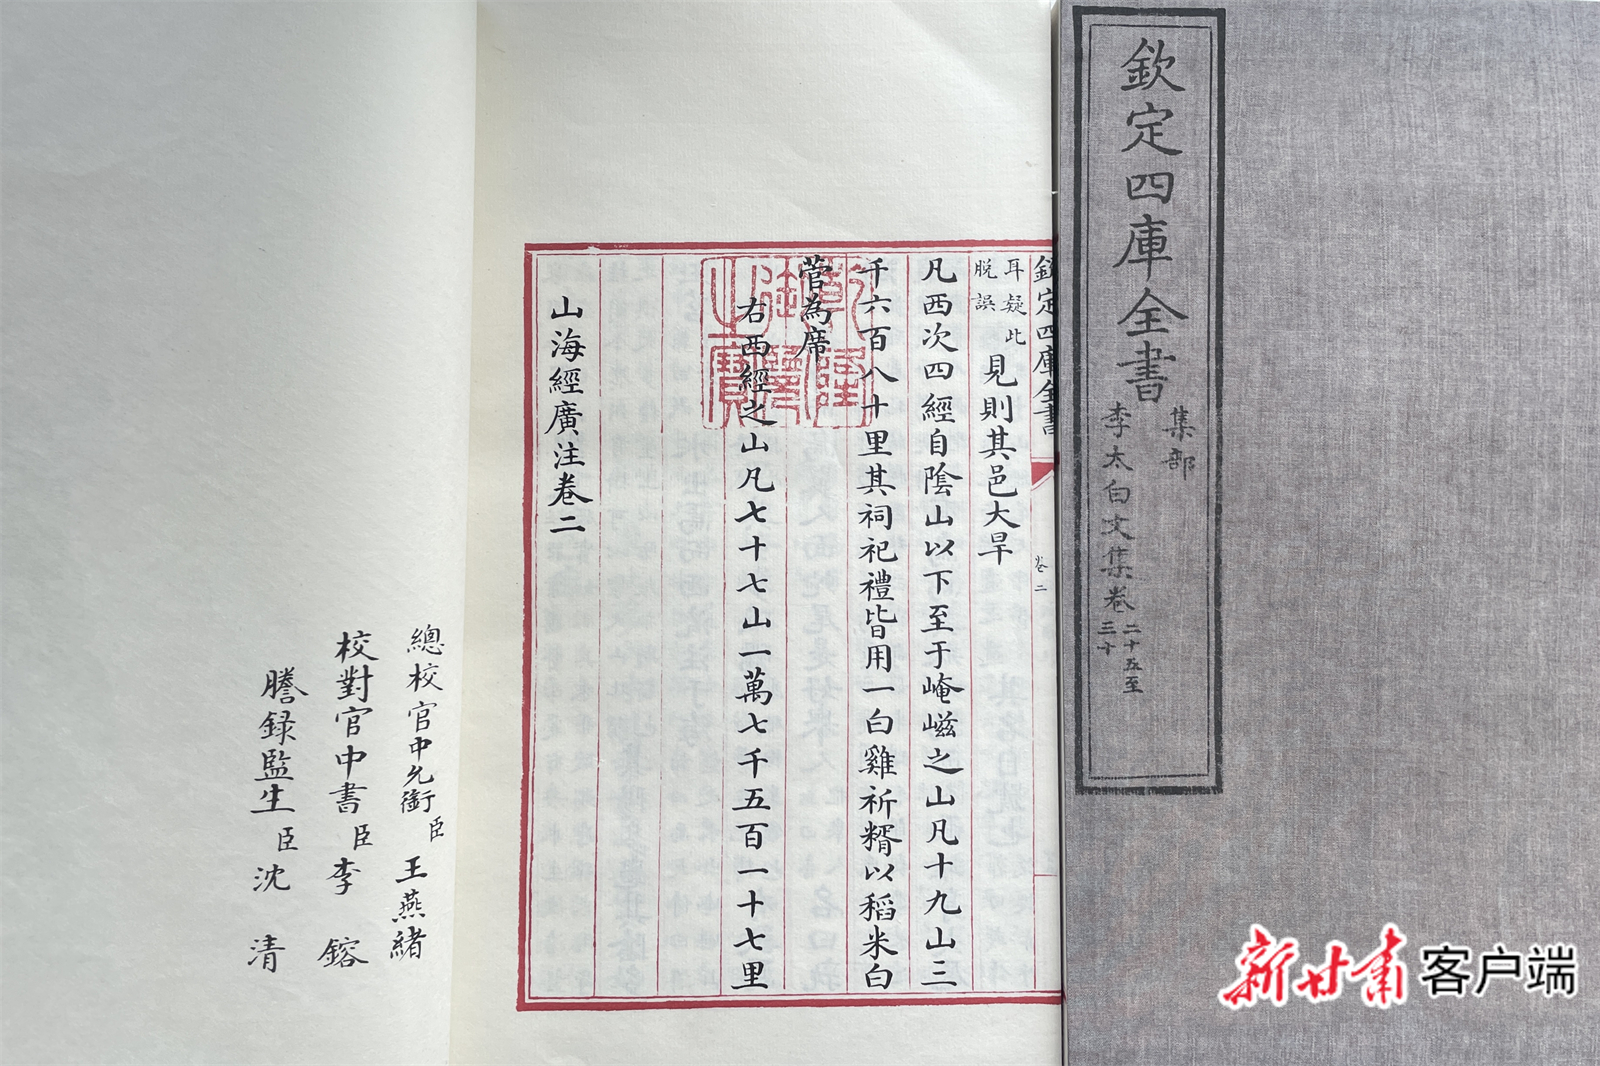 欽定四庫全書
集部
李太白文集卷二十五至三十
欽定四庫全書
卷二
耳疑此
脫誤
見則其邑大旱
凡西次四經自陰山以下至于崦嵫之山凡十九山三
千六百八十里其祠祀禮皆用一白雞祈糈以稻米白
菅為席
右西經之山凡七十七山一萬七千五百一十七里
山海經廣注卷二
乾隆御覽之寶
總校官中允銜臣王燕緒
校對官中書臣李鎔
謄録監生臣沈清
新甘肃客户端